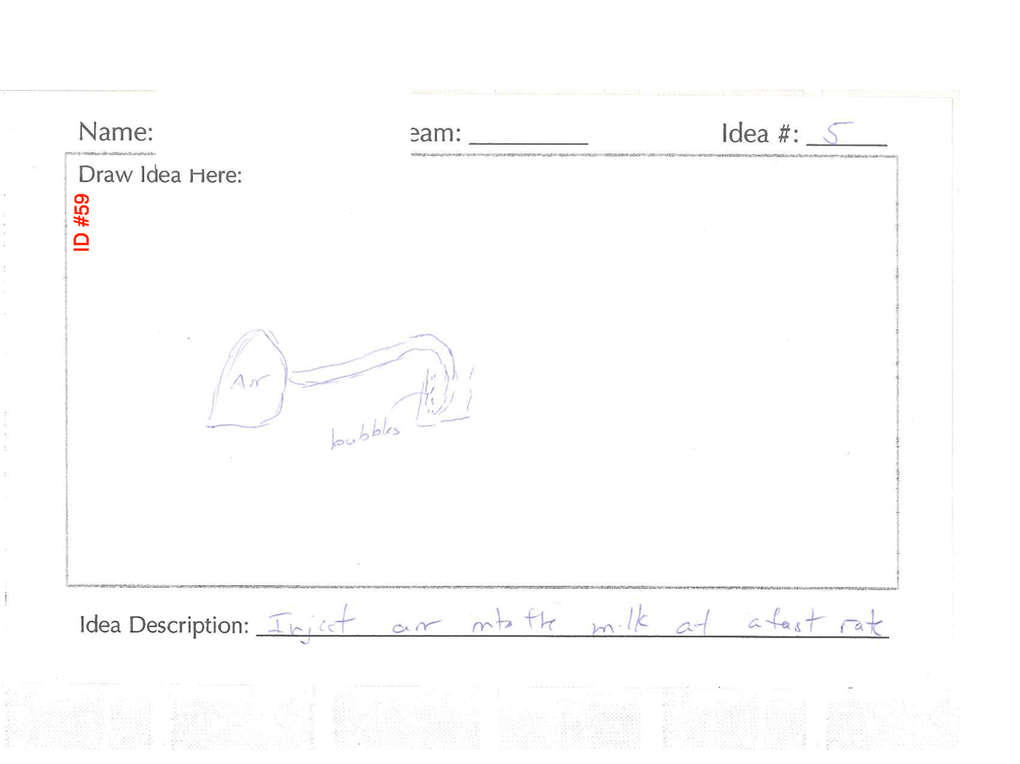 Name: eam: Idea #: 5
Draw Idea Here:
ID #59
Air
bubbles
Idea Description: Inject air into the milk at a fast rate